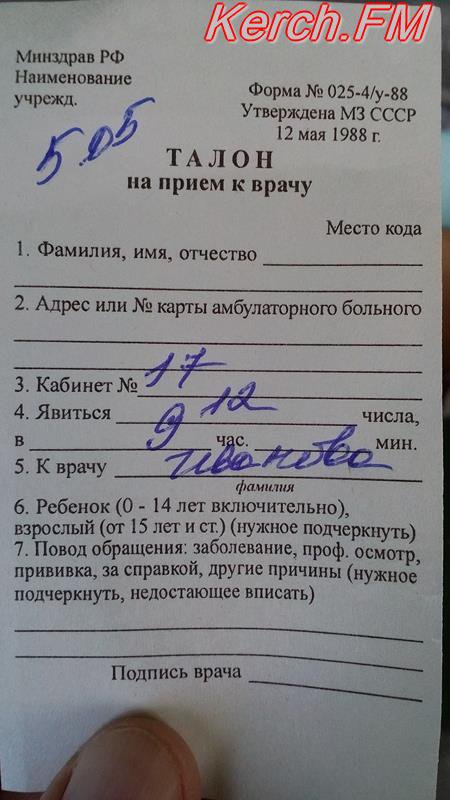 Kerch.FM
Минздрав РФ
Наименование
учрежд.
Форма № 025-4/у-88
Утверждена МЗ СССР
12 мая 1988 г.
5.05
ТАЛОН
на прием к врачу
Место кода
1. Фамилия, имя, отчество
2. Адрес или № карты амбулаторного больного
3. Кабинет № 17
4. Явиться 9 12 числа,
в час. мин.
5. К врачу Иванова
фамилия
6. Ребенок (0 - 14 лет включительно),
взрослый (от 15 лет и ст.) (нужное подчеркнуть)
7. Повод обращения: заболевание, проф. осмотр,
прививка, за справкой, другие причины (нужное
подчеркнуть, недостающее вписать)
Подпись врача